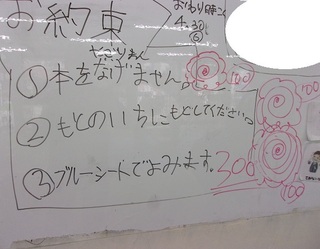 お約束
おわり時こく
①本をなげません。
100
②もとのいちにもどしてください。
100
③ブルーシートでよみます。
300
100